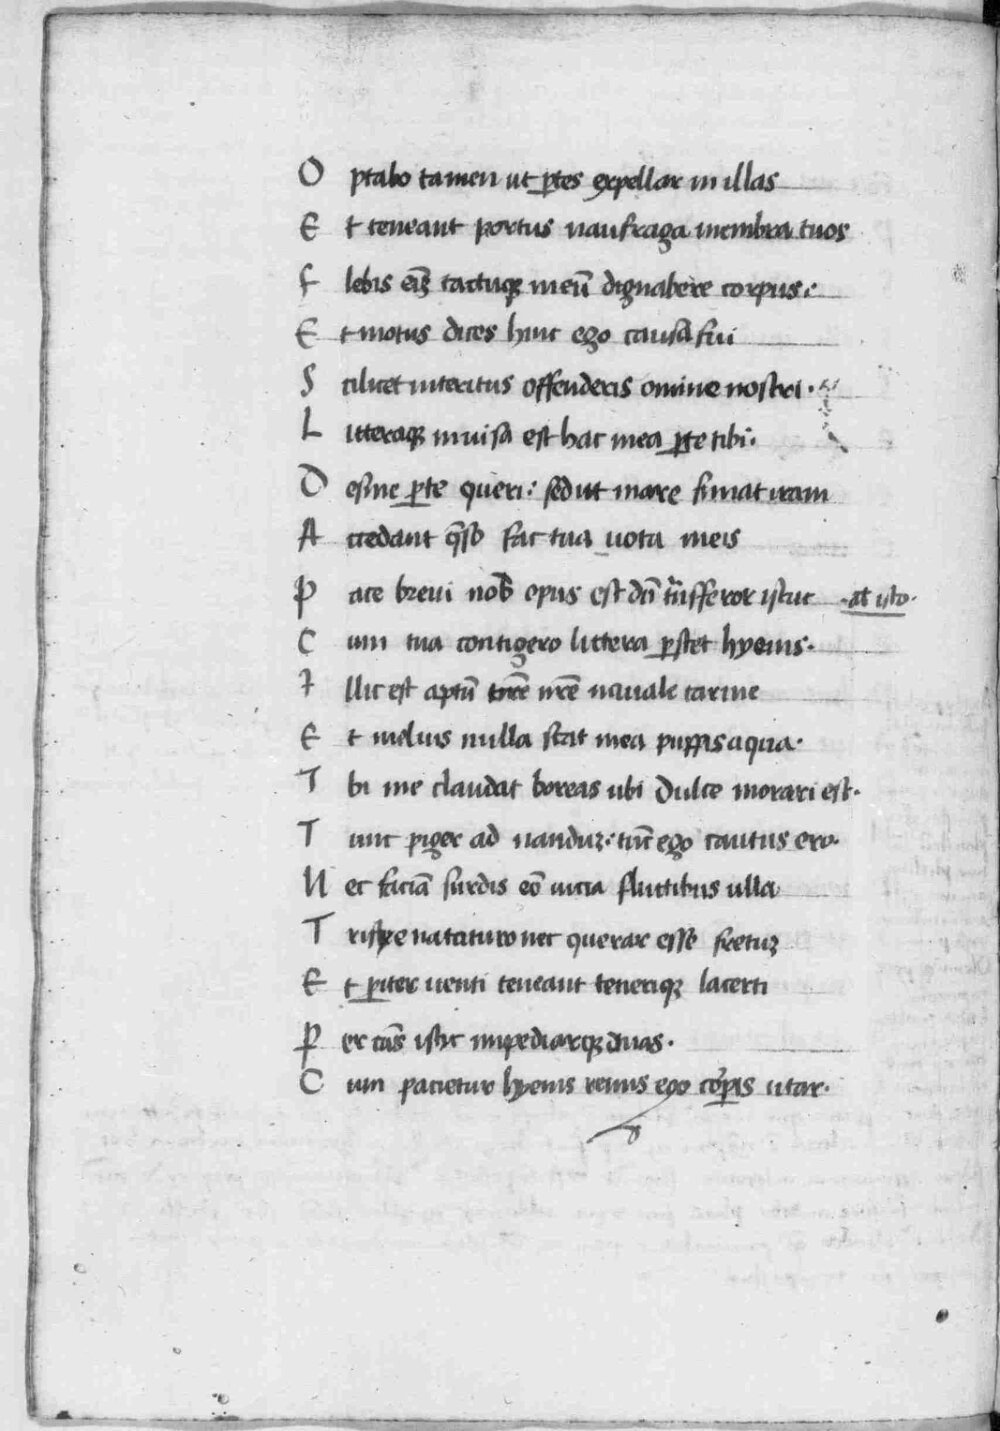 O ptabo tamen ut ꝑtes expellar in illas
E t teneant portus naufraga membra tuos
F lebis eĩ tactuqꝫ meũ dignabere corpus
E t motus dices huic ego causa fui
S cilicet interitus offenderis omine nostri
L itteraqꝫ inuisa est hac mea ꝑte tibi
D esine ꝑte queri: sed ut mare finiat iram
A ccedant q̃so fac tua uota meis
P ace breui nob opus est dũ trãsferor istuc at isto
C um tua contigero littera ꝑstet hyems
I llic est aptũ nr̃e nauale carine
E t melius nulla stat mea puppis aqua
I bi me claudat boreas ubi dulce morari est
T unc piger ad nanduꝫ: tũc ego cautus ero
N ec faciã surdis cõuicia fluctibus ulla
T riste nataturo nec querar esse fretuꝫ
E t ꝑiter uenti teneant teneriqꝫ lacerti
P er cãs istic impediarqꝫ duas
C um pacietur hyems remis ego corꝑis utar